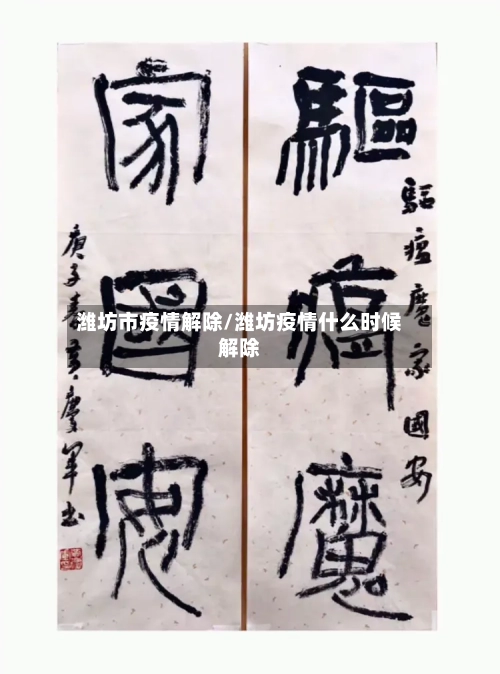 驅瘟魔
驅瘟魔家國安
家國安
庚子春
軍書
潍坊市疫情解除/潍坊疫情什么时候
解除